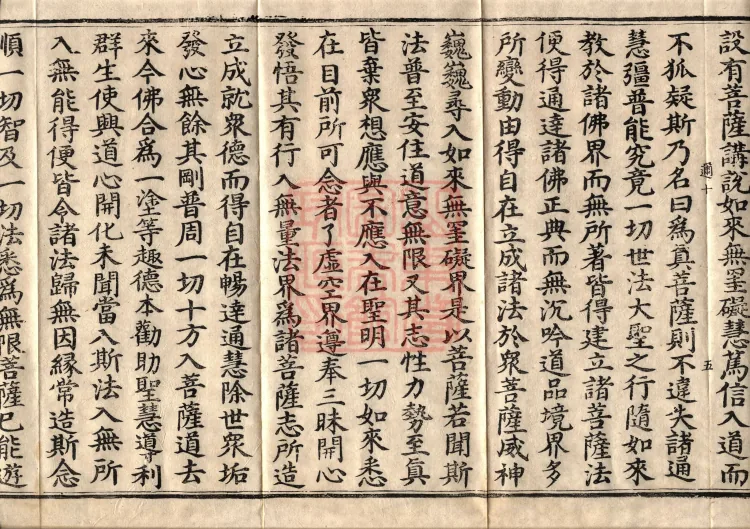 設有菩薩講說如來無罣礙慧篤信入道而
不狐疑斯乃名曰為真菩薩則不違失諸通
慧彊普能究竟一切世法大聖之行隨如來
教於諸佛界而無所著皆得建立諸菩薩法
便得通達諸佛正典而無沉吟道品境界多
所變動由得自在立成諸法於眾菩薩威神
巍巍尋入如來無罣礙界是以菩薩若聞斯
法普至安住道意無限又其志性力勢至真
皆棄眾想應與不應入在聖明一切如來悉
在目前所可念者了虛空界遵奉三昧開心
發悟其有行入無量法界為諸菩薩志所造
立成就眾德而得自在暢達通慧除世眾垢
發心無餘其剛普周一切十方入菩薩道去
來今佛合為一塗等趣德本勸助聖慧導利
群生使興道心開化未聞當入斯法入無所
入無能得便皆令諸法歸無因緣常造斯念
順一切智及一切法悉為無限菩薩已能遊
五